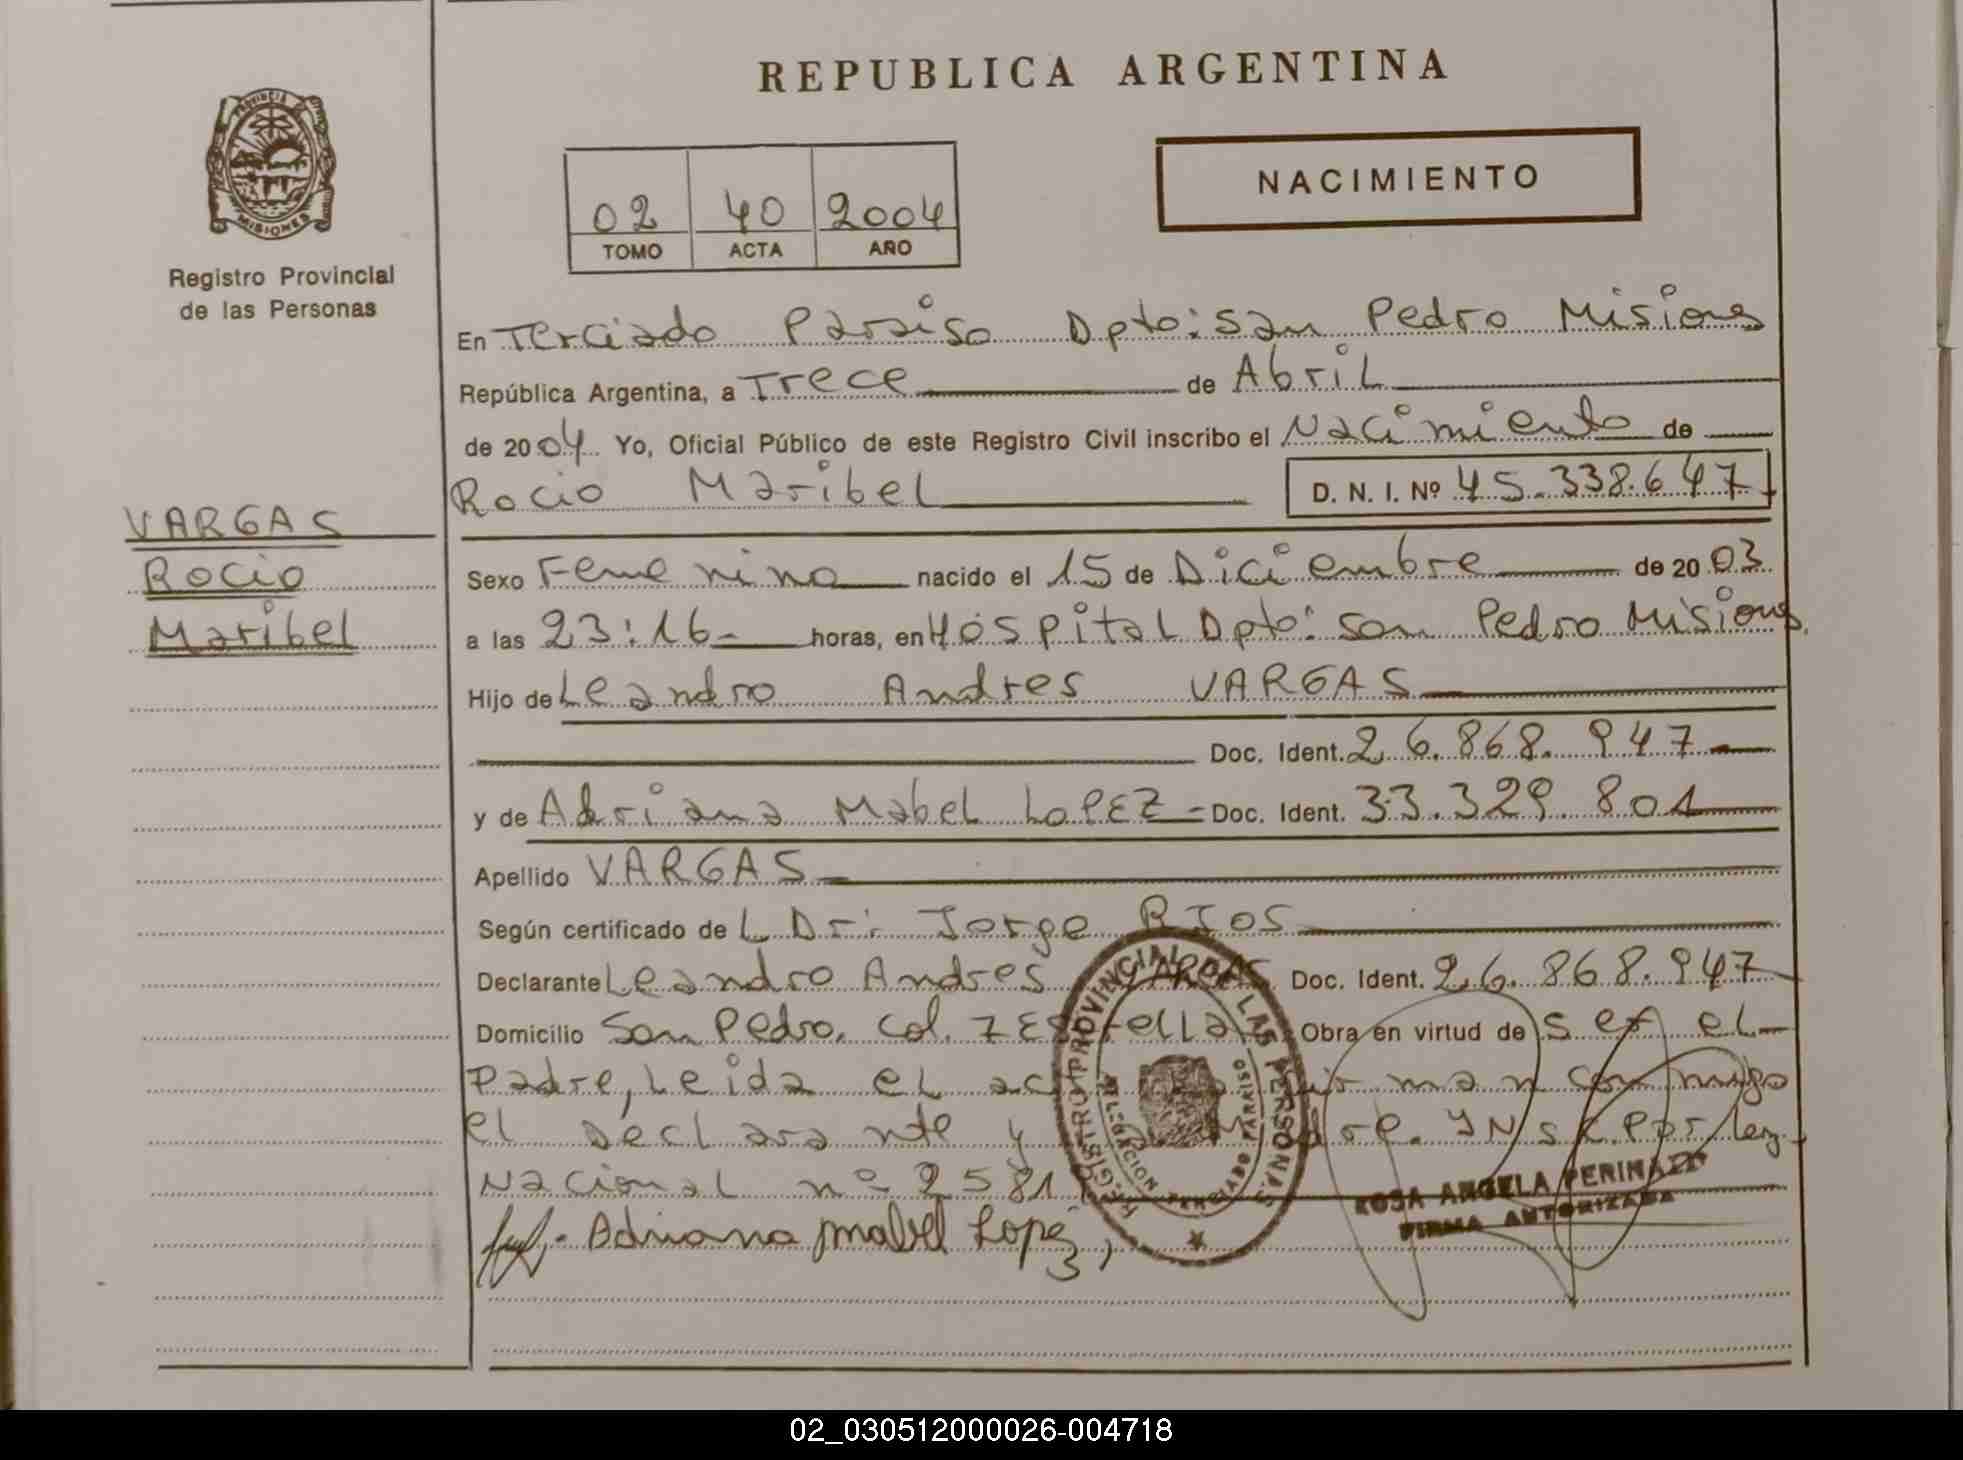 REPUBLICA ARGENTINA
NACIMIENTO
02 40 2004
TOMO ACTA AÑO
PROVINCIA DE
MISIONES
Registro Provincial
de las Personas
VARGAS
Rocio
Maribel
En Terciado Paraiso Dpto: San Pedro Misiones
República Argentina, a Trece de Abril
de 2004 Yo, Oficial Público de este Registro Civil inscribo el Nacimiento de
Rocio Maribel D. N. I. Nº 45.338.647
Sexo Femenino nacido el 15 de Diciembre de 2003
a las 23:16 horas, en Hospital Dpto: San Pedro Misiones.
Hijo de Leandro Andres VARGAS
Doc. Ident. 26.868.947
y de Adriana Mabel LOPEZ = Doc. Ident. 33.329.801
Apellido VARGAS
Según certificado deL Dr: Jorge RIOS
Declarante Leandro Andres VARGAS Doc. Ident. 26.868.947
Domicilio San Pedro. Col. 7 Estrella Obra en virtud de ser el
Padre, Leida el firman conmigo
el Declarante y Madre. INsc. Por Ley
Nacional nº 2581
Adriana Mabel Lopez
REGISTRO PROVINCIAL DE LAS PERSONAS
DELEGACION TERCIADO PARAISO
ROSA ANGELA
FIRMA AUTORIZADA
02_030512000026-004718